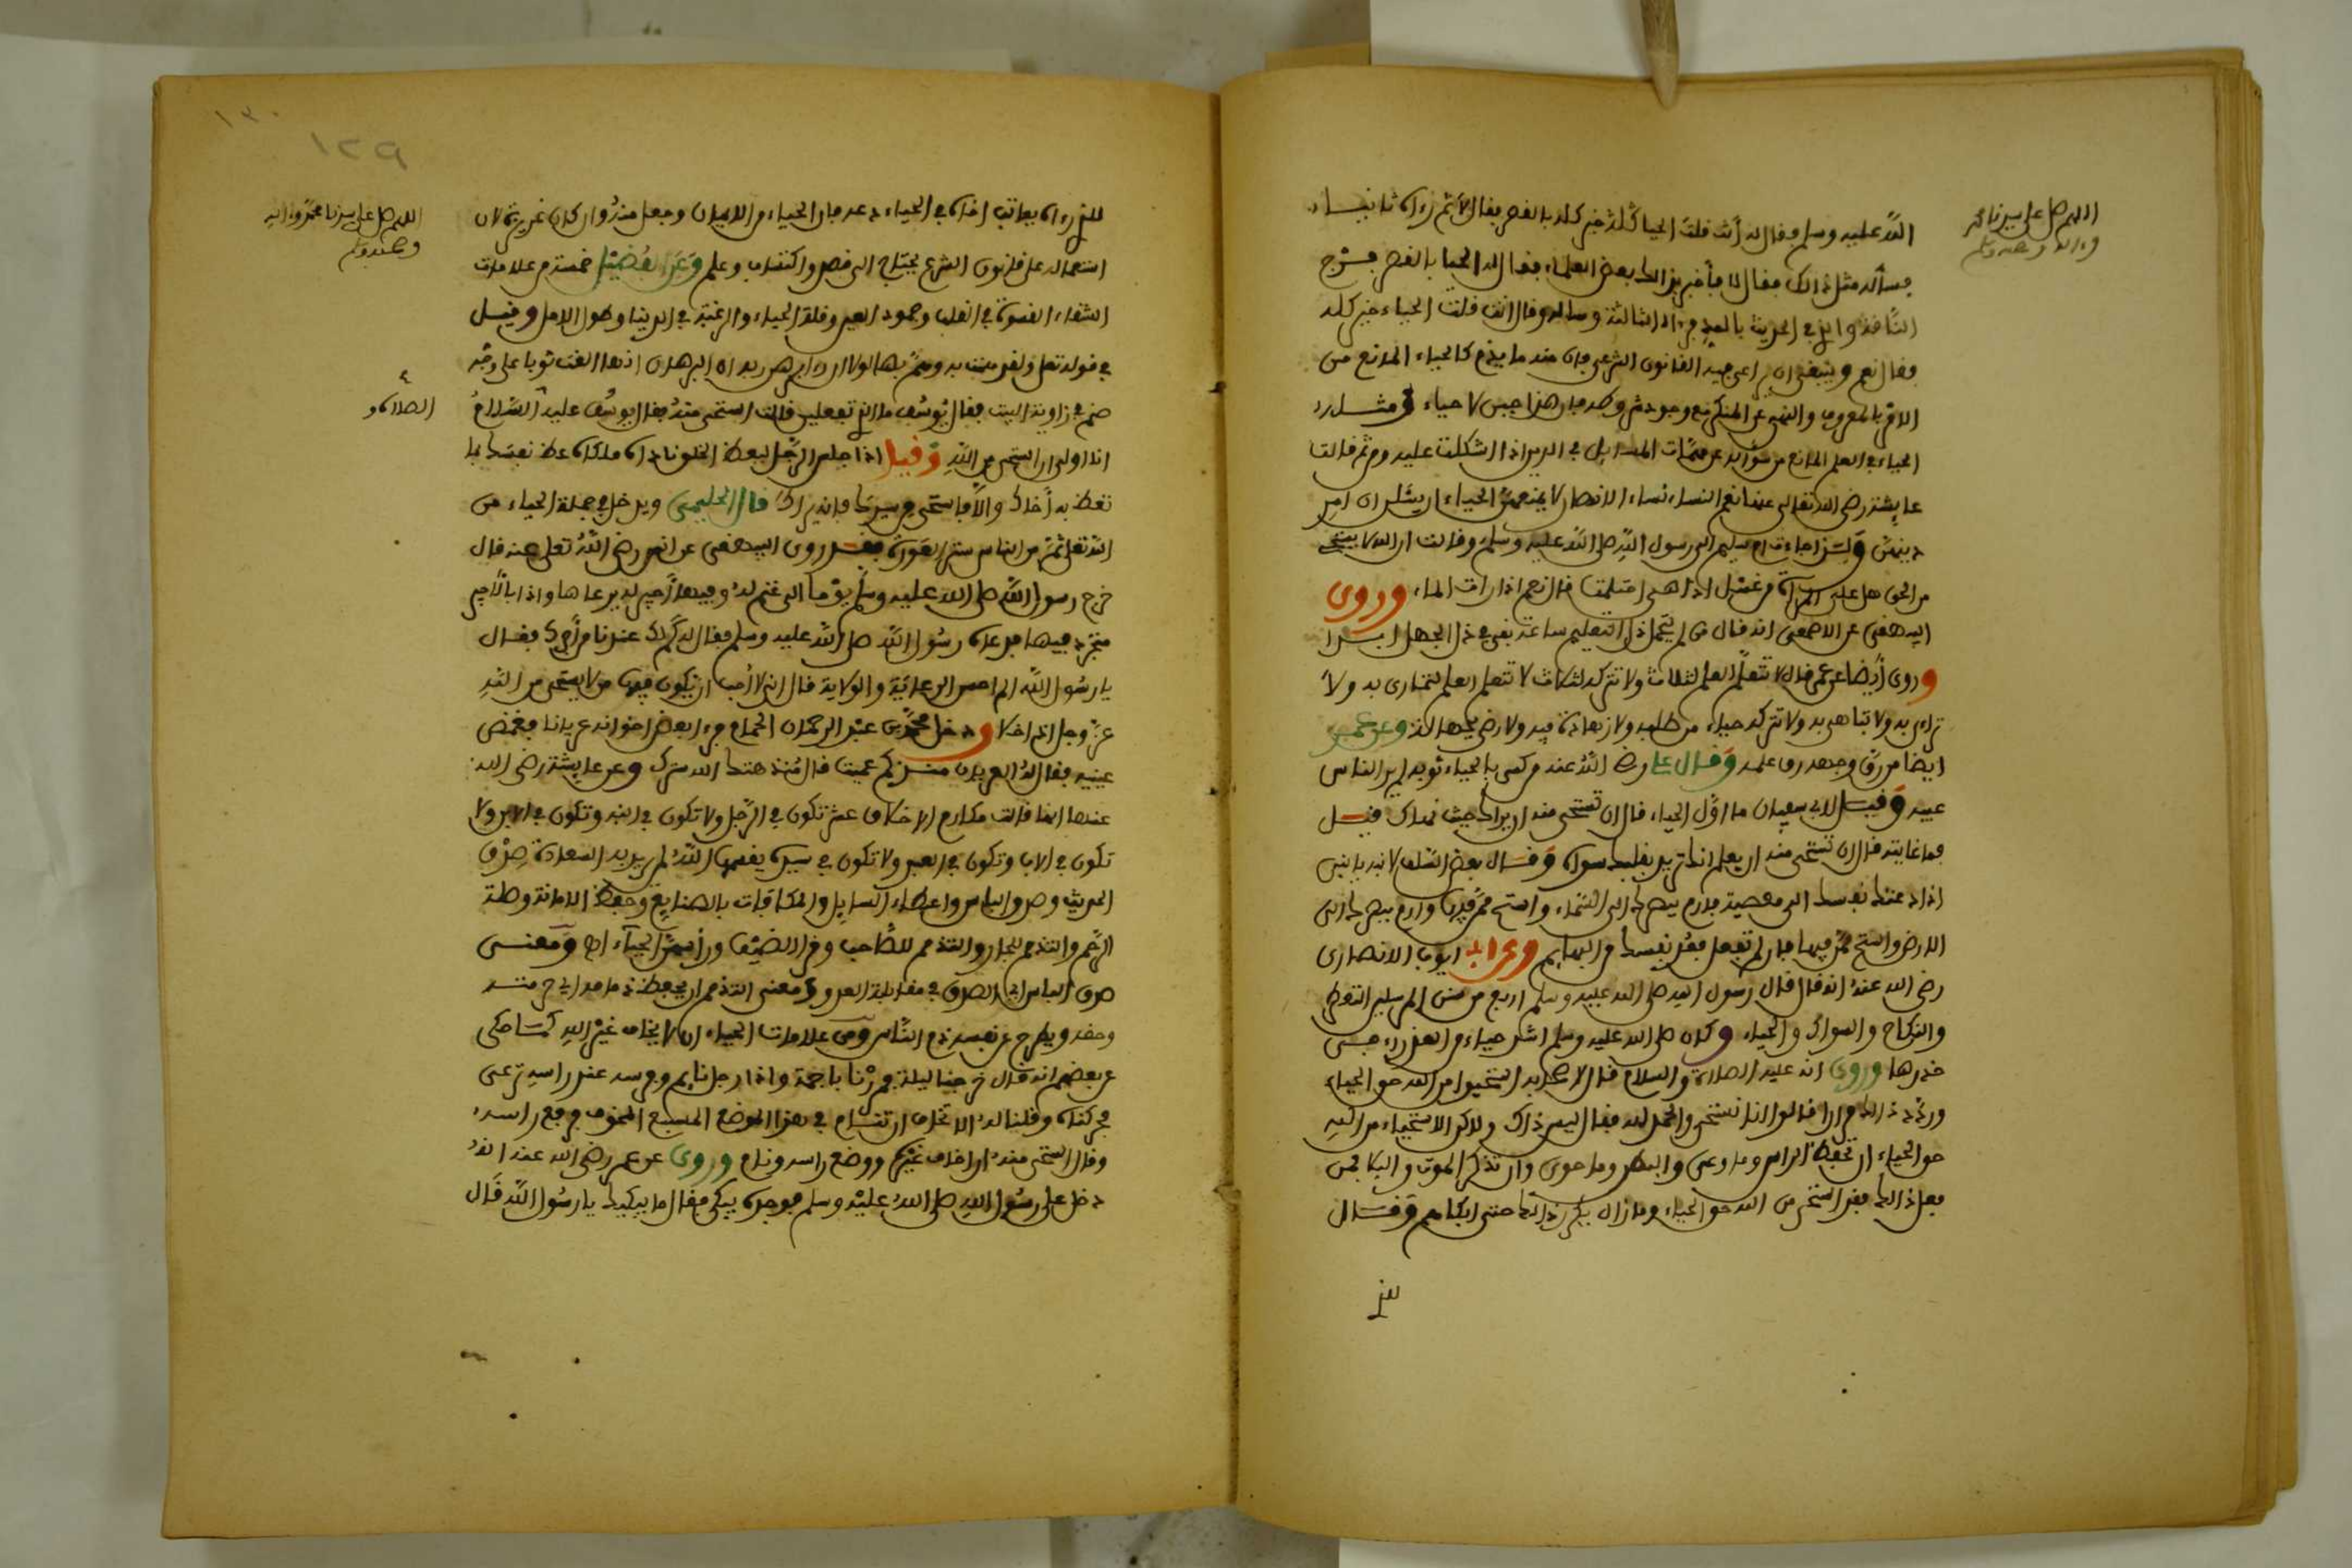 اللهم صل على سيدنا محمد
وءاله وصحبه وسلم
الله عليه وسلم وقال له أنت قلت الحيا كله خير كله بالقصر فقال لا ثم رءاه ثانيا
فسأله مثل ذالك فقال لا فأخبر بذالك بعض العلماء فقال له الحيا بالقصر فرج
الناقة وانما في الحديث بالمد فرءاه الثالثة وساله وقال انت قلت الحياء خير كله
فقال نعم وينبغي ان يراعى فيه القانون الشرعي فان منه ما يذم كالحياء المانع من
الامر بالمعروف والنهي عن المنكر مع وجود شروطه فان هذا جبن لا حياء ومثله
الحياء في العلم المانع من سؤاله عن مهمات المسايل في الدين اذا اشكلت عليه ومن ثم قالت
عايشة رضي الله تعالى عنها نعم النساء نساء الانصار لا يمنعهن الحياء ان يسئلن ان امر
دينهن ولذا جاءت ام سليم الى رسول الله صلى الله عليه وسلم وقالت ان الله لا يستحي
من الحق هل على المرأة من غسل اذا هي احتلمت قال نعم اذا رات الماء وروى
البيهقي عن الاصمعي انه قال من لم يتحمل ذل التعليم ساعة بقي في ذل الجهل ابدا
وروى أيضا عن عمر قال لا تتعلم العلم لثلاث ولا تتركه لثلاث لا تتعلم العلم لتمارى به ولا
ترائى به ولا تباهى به ولا تتركه حياء من طلبه ولا زهادة فيه ولا رضى بجهالة وعن عمر
ايضا من رق وجهه رق علمه وقال علي رضي الله عنه من كسى بالحياء ثوبه لم ير الناس
عيبه وقيل لابي سفيان ما اول الحياء قال ان تستحي منه ان يراك حيث نهاك قيل
فما غايته قال ان تستحي منه ان يعلم انك تريد بقلبك سواه وقال بعض السلف لابنه يا بني
اذا دعتك نفسك الى معصية فارم ببصرك الى السماء واستح ممن فيها وارم ببصرك الى
الارض واستح ممن فيها فان لم تفعل فعد نفسك من البهايم وعن ابي ايوب الانصارى
رضي الله عنه انه قال قال رسول الله صلى الله عليه وسلم اربع من سنن المرسلين التعطر
والنكاح والسواك والحياء وكان صلى الله عليه وسلم اشد حياء من العذراء في
خدرها وروى انه عليه الصلاة والسلام قال لاصحابه استحيوا من الله حق الحياء
وردد ذالك مرارا قالوا انا نستحي والحمد لله فقال ليس ذاك ولاكن الاستحياء من الله
حق الحياء ان تحفظ الراس وما وعى والبطن وما حوى وان تذكر الموت والبلا فمن
فعل ذالك فقد استحى من الله حق الحياء وما زال يكرر ذالك حتى ابكاهم وقال
للذي
١٣٠
١٢٩
اللهم صل على سيدنا محمد وءاله
وصحبه وسلم
للذي رءاه يعاتب اخاه في الحياء دعه فان الحياء من الايمان وجعل منه وان كان غريزة لان
استعماله على قانون الشرع يحتاج الى قصد واكتساب وعلم وعن الفضيل خمسة من علامات
الشقاء القسوة في القلب وجمود العين وقلة الحياء والرغبة في الدنيا وطول الامل وقيل
في قوله تعالى ولقد همت به وهم بها لولا ان رءا برهان ربه ان البرهان انها القت ثوبا على وجه
صنم في زاوية البيت فقال يوسف ما الذي تفعلين قالت استحي منه فقال يوسف عليه السلام
الصلاة و
انا اولى ان استحي من الله وقيل اذا جلس الرجل ليعظ الخلق ناداه ملكاه عظ نفسك بما
تعظ به أخاك والا فاستحي من سيدك فانه يراك قال الحليمي ويدخل في جملة الحياء من
الله تعالى ثم من الناس ستر العورة فقد روى البيهقي عن انس رضي الله تعالى عنه قال
خرج رسول الله صلى الله عليه وسلم يوما الى غنم له وفيها أجير له يرعاها واذا بالاجير
متجرد فيها فدعاه رسول الله صلى الله عليه وسلم فقال له كم لك عندنا من أجرك فقال
يا رسول الله الم احسن الرعاية والولاية قال اني لا أحب ان يكون فيها من لا يستحي من الله
عز وجل اذا خلا ودخل محمد بن عبد الرحمان الحمام فرءا بعض اخوانه عريانا فغمض
عينيه فقال له العريان منذ كم عميت قال منذ هتك الله سترك وعن عايشة رضي الله
عنها انها قالت مكارم الاخلاق عشر تكون في الرجل ولا تكون في ابنه وتكون في الابن ولا
تكون في الاب وتكون في العبد ولا تكون في سيده يقسمها الله لمن يريد به السعادة صدق
الحديث وصدق الباس واعطاء السايل والمكافات بالصنايع وحفظ الامانة وصلة
الرحم والتذمم للجار والتذمم للصاحب وقرى الضيف ورأسهن الحياء اه ومعنى
صدق الباس اي الصدق في مقابلة العدو ومعنى التذمم ان يحفظ ذمامه اي حرمته
وحقه ويطرح عن نفسه ذم الناس ومن علامات الحياء ان لا يخاف غير الله كما حكى
عن بعضهم انه قال خرجنا ليلة فمررنا باجمة واذا رجل نايم وفرسه عند راسه ترعى
فحركناه وقلنا له الا تخاف ان تنام في هذا الموضع المسبع المخوف فرفع راسه
وقال استحى منه ان اخاف غيره ووضع راسه ونام وروى عن عمر رضي الله عنه انه
دخل على رسول الله صلى الله عليه وسلم فوجده يبكي فقال ما يبكيك يا رسول الله قال